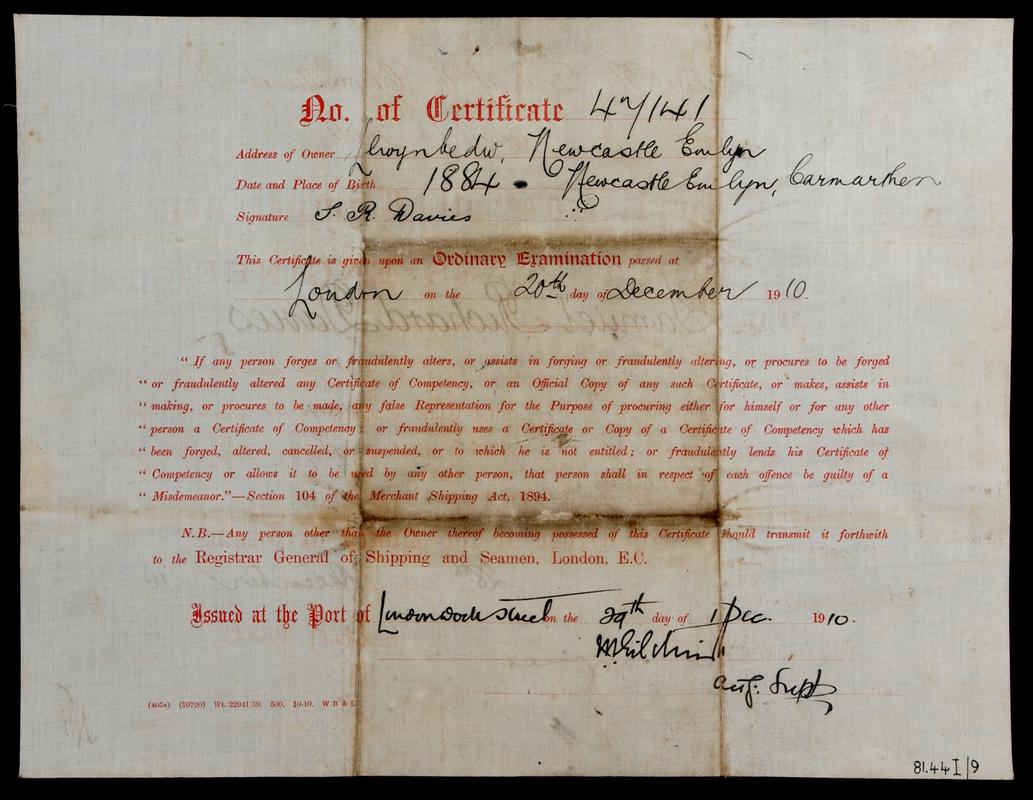 No. of Certificate 47/141
Address of Owner Llwynbedw, Newcastle Emlyn
Date and Place of Birth 1884 - Newcastle Emlyn, Carmarthen
Signature S. R. Davies
This Certificate is given upon an Ordinary Examination passed at
London on the 20th day of December 1910.
Samuel Richard Davies
" If any person forges or fraudulently alters, or assists in forging or fraudulently altering, or procures to be forged
" or fraudulently altered any Certificate of Competency, or an Official Copy of any such Certificate, or makes, assists in
" making, or procures to be made, any false Representation for the Purpose of procuring either for himself or for any other
" person a Certificate of Competency; or fraudulently uses a Certificate or Copy of a Certificate of Competency which has
" been forged, altered, cancelled, or suspended, or to which he is not entitled; or fraudulently lends his Certificate of
" Competency or allows it to be used by any other person, that person shall in respect of each offence be guilty of a
" Misdemeanor."—Section 104 of the Merchant Shipping Act, 1894.
N.B.—Any person other than the Owner thereof becoming possessed of this Certificate should transmit it forthwith
to the Registrar General of Shipping and Seamen, London, E.C.
Issued at the Port of London Dock Street on the 29th day of Dec. 1910.
Supt
(405a) (59720) Wt. 22941/59. 500. 10-10. W B & L
81.44I/9